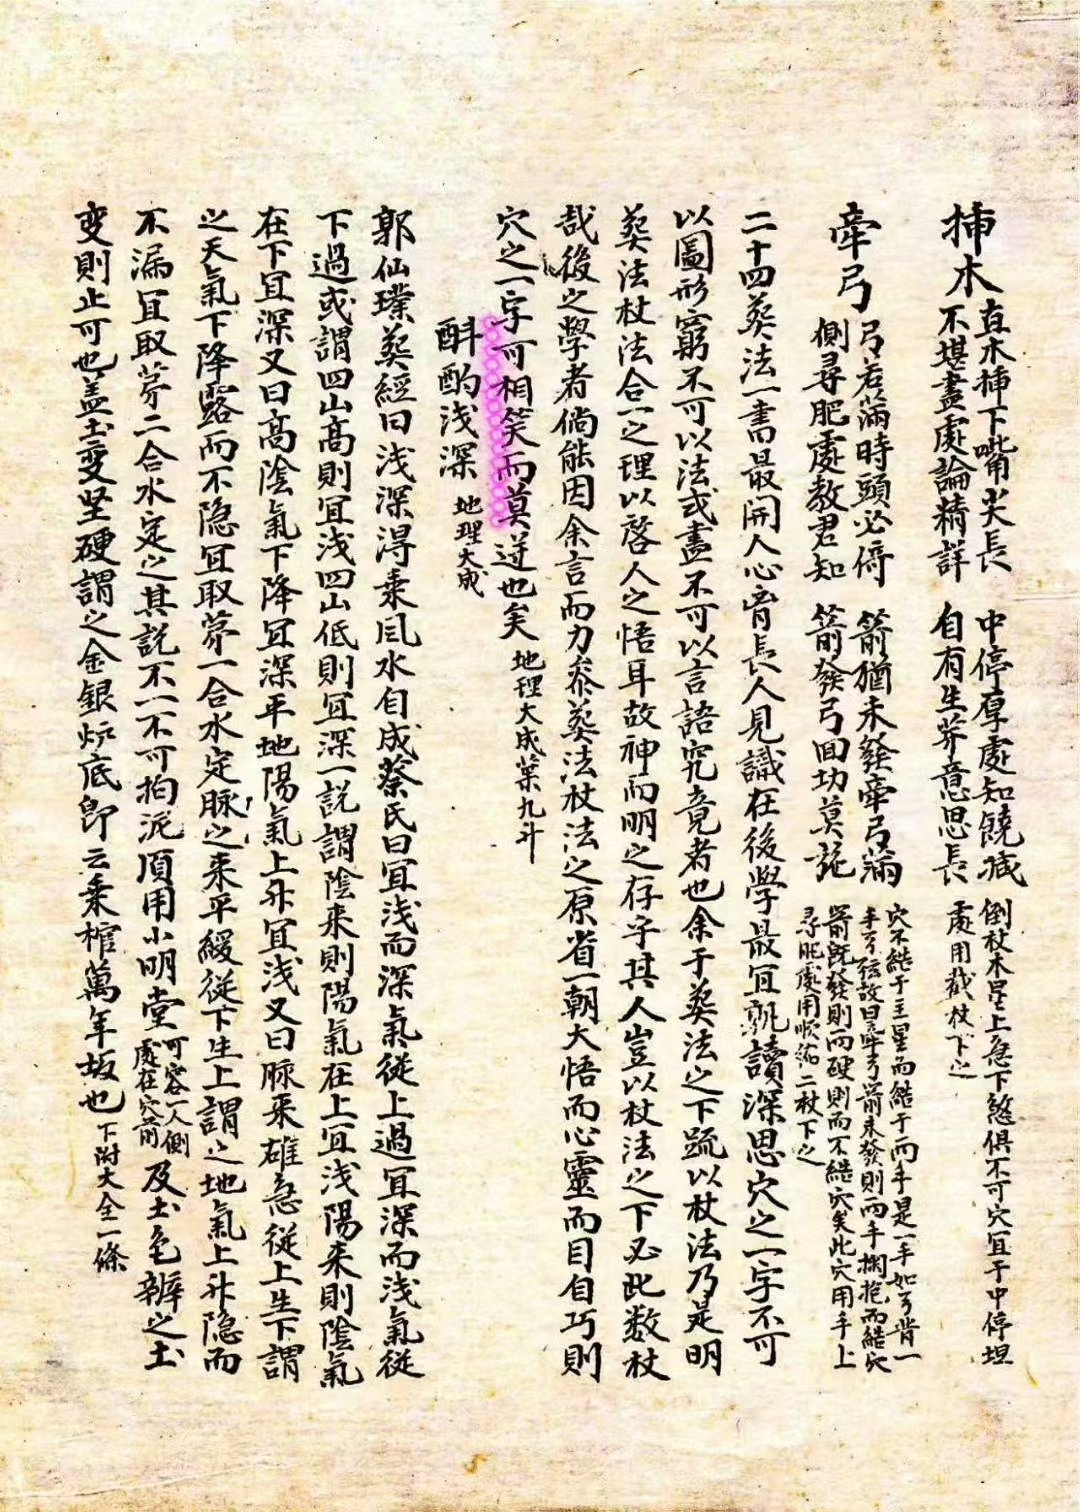 揷木 直木揷下嘴尖長 中停厚處知饒减 倒杖木星上急下煞俱不可穴冝于中停坦
不堪盡處論精詳 自有生芽意思長 處用截杖下之
牽弓 弓若滿時頭必倚 箭猶未發牽弓滿 穴不結于主星而結于両手是一手如弓背一
手弓弦故曰牽弓箭未發則両手擱抱而結穴
側尋肥處教君知 箭發弓囬功莫施 箭既發則両硬則而不結穴矣此穴用手上
尋肥處用順逆二杖下之
二十四葬法一書最開人心胷長人見識在後學最冝熟讀深思穴之一字不可
以圖形窮不可以法或盡不可以言語究竟者也余于葬法之下䟽以杖法乃是明
葬法杖法合一之理以啓人之悟耳故神而明之存乎其人豈以杖法之下必此数杖
哉後之學者倘能因余言而力叅葬法杖法之原省一朝大悟而心靈而目自巧則
穴之一字可相笑而莫逆也矣 地理大成葉九斗
斟酌浅深 地理大成
郭仙璞葬經曰浅深淂乗風水自成蔡氏曰冝浅而深氣從上過冝深而浅氣從
下過或謂四山高則冝浅四山低則冝深一説謂陰来則陽氣在上冝浅陽来則陰氣
在下冝深又曰高陰氣下降冝深平地陽氣上升冝浅又曰脉来雄急從上生下謂
之天氣下降露而不隐冝取芽一合水定脉之来平緩従下生上謂之地氣上升隐而
不漏冝取芽二合水定之其説不一不可拘泥湏用小明堂 可容一人側
處在穴前 及土色辨之土
变則止可也盖土变坚硬謂之金銀炉底即云乗棺萬年坂也 下附大全一條